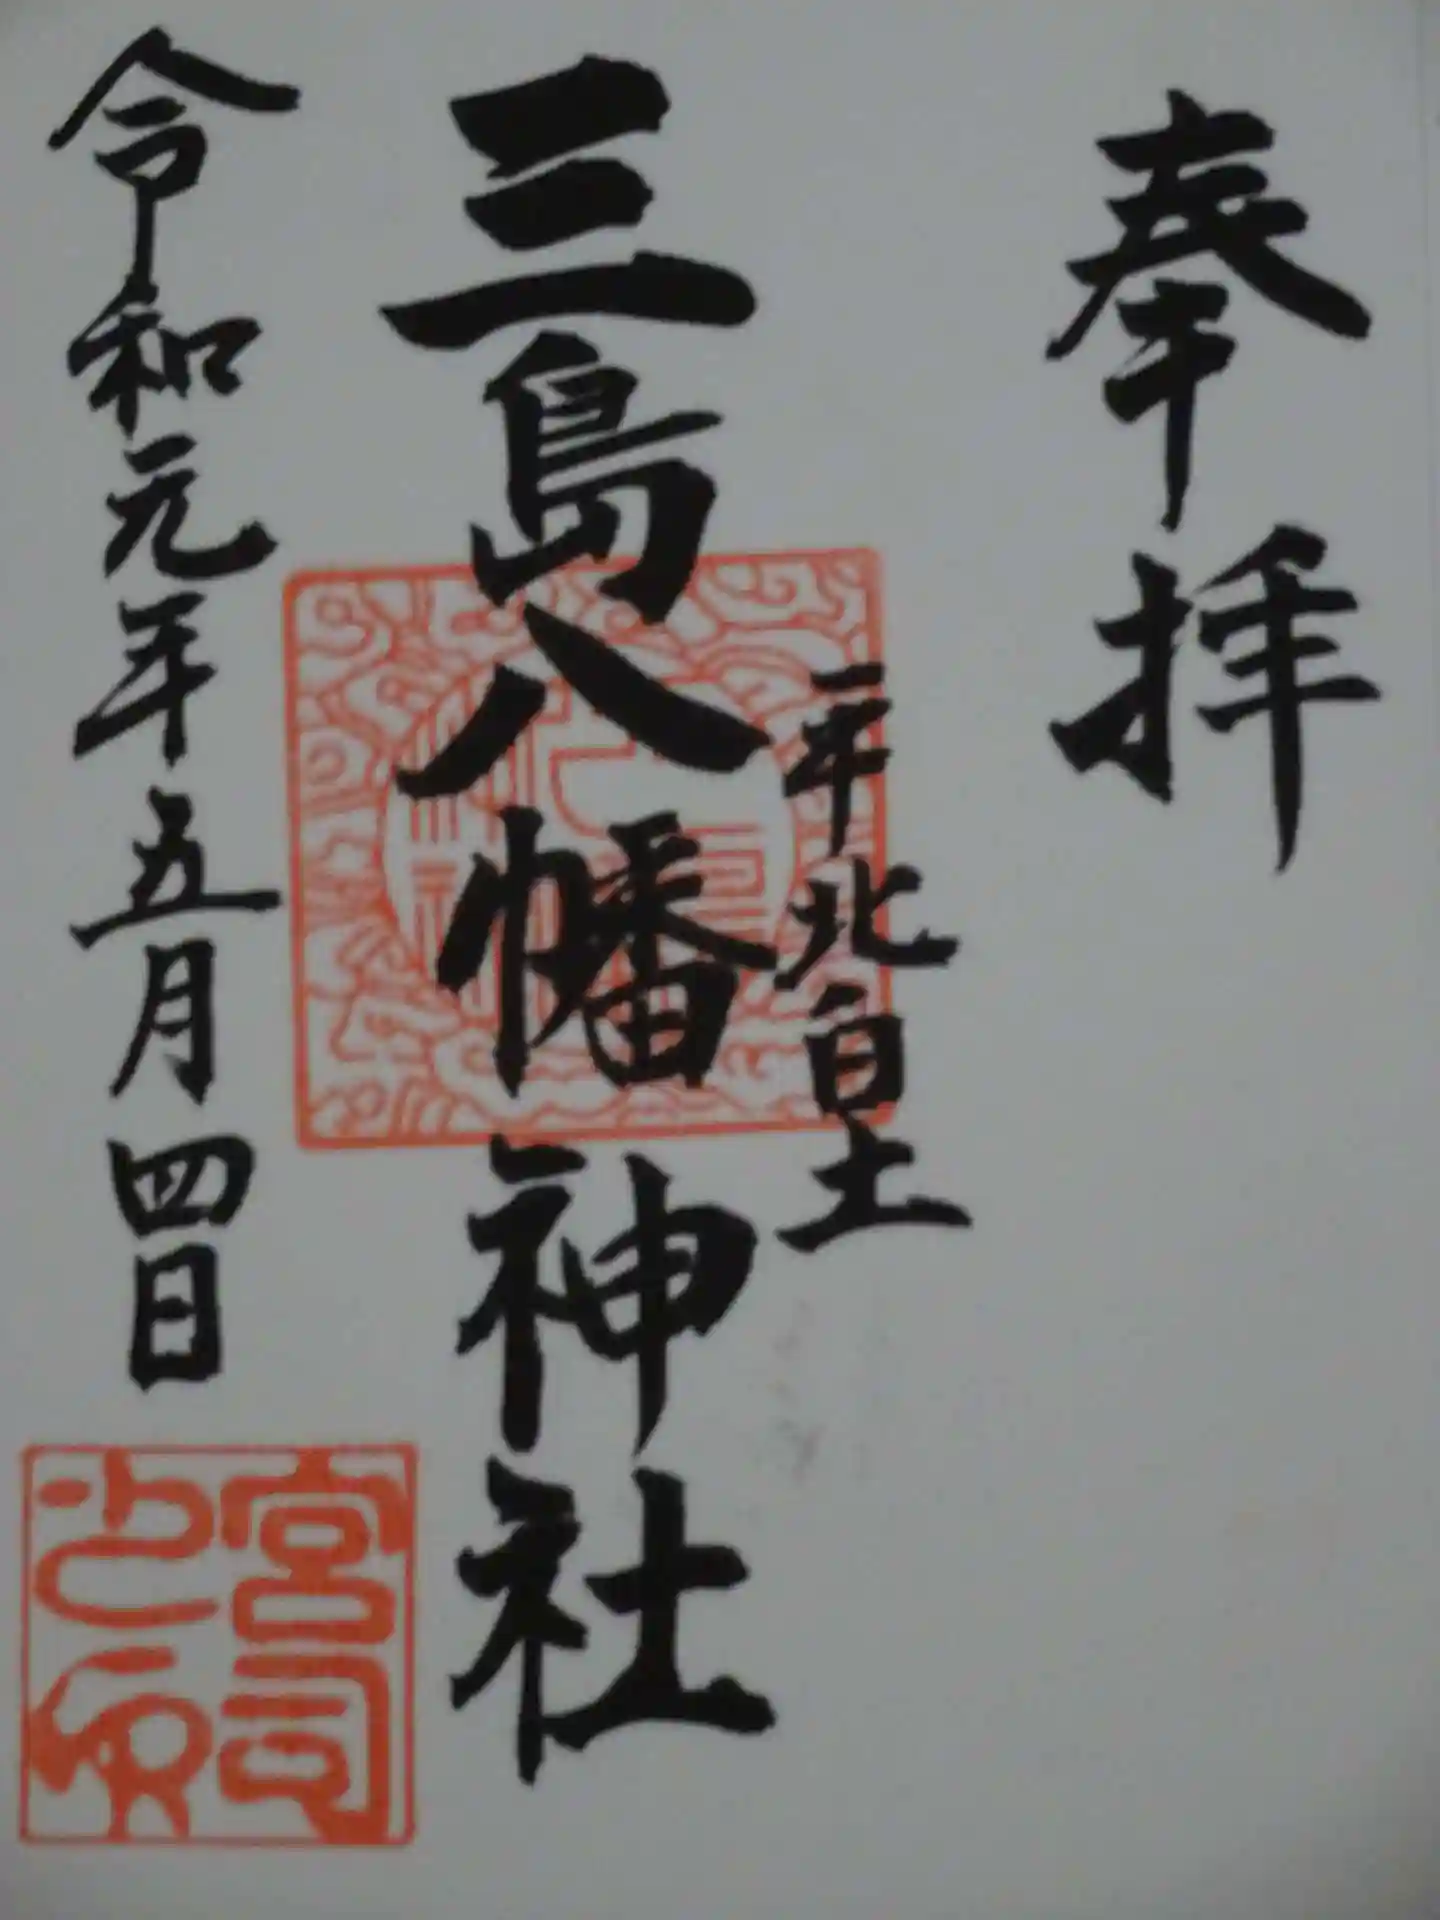 奉拝
平北白土
三島八幡神社
令和元年五月四日
宮司
之印